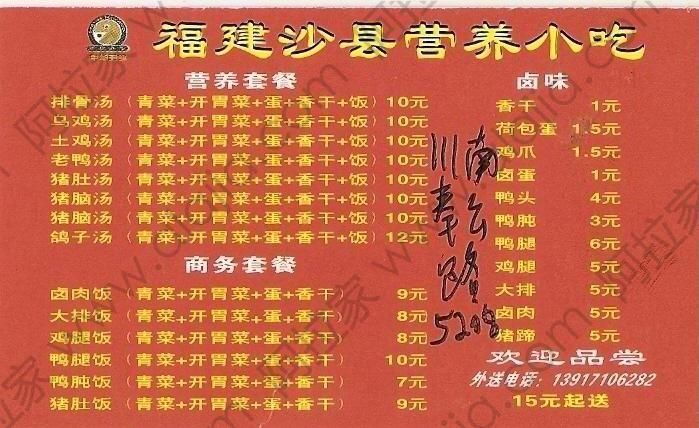 福建沙县营养小吃
营养套餐
排骨汤（青菜+开胃菜+蛋+香干+饭）10元
乌鸡汤（青菜+开胃菜+蛋+香干+饭）10元
土鸡汤（青菜+开胃菜+蛋+香干+饭）10元
老鸭汤（青菜+开胃菜+蛋+香干+饭）10元
猪肚汤（青菜+开胃菜+蛋+香干+饭）10元
猪脑汤（青菜+开胃菜+蛋+香干+饭）10元
猪脑汤（青菜+开胃菜+蛋+香干+饭）10元
鸽子汤（青菜+开胃菜+蛋+香干+饭）12元
商务套餐
卤肉饭（青菜+开胃菜+蛋+香干） 9元
大排饭（青菜+开胃菜+蛋+香干） 8元
鸡腿饭（青菜+开胃菜+蛋+香干） 8元
鸭腿饭（青菜+开胃菜+蛋+香干） 10元
鸭肫饭（青菜+开胃菜+蛋+香干） 7元
猪肚饭（青菜+开胃菜+蛋+香干） 9元
南云路
川奉
卤味
香干 1元
荷包蛋 1.5元
鸡爪 1.5元
卤蛋 1元
鸭头 4元
鸭肫 3元
鸭腿 6元
鸡腿 5元
大排 5元
卤肉 5元
猪蹄 5元
欢迎品尝
外送电话：13917106282
15元起送
阿拉家 www.alajia.com